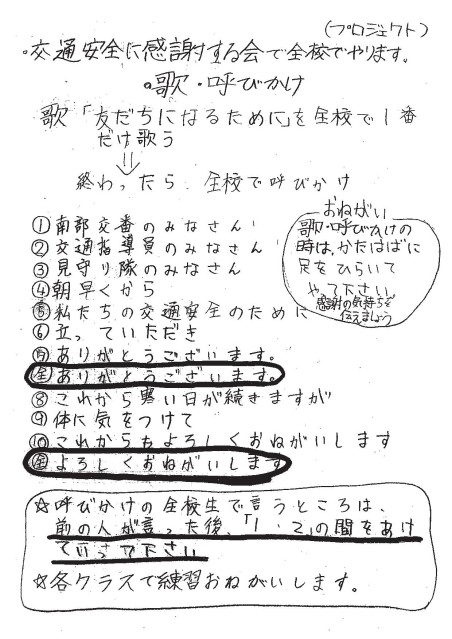 (プロジェクト)
・交通安全に感謝する会で全校でやります。
・歌・呼びかけ
歌「友だちになるために」を全校で1番
だけ歌う
⇓
終わったら 全校で呼びかけ
①南部交番のみなさん
②交通指導員のみなさん
③見守り隊のみなさん
④朝早くから
⑤私たちの交通安全のために
⑥立っていただき
⑦ありがとうございます。
全ありがとうございます。
⑧これから寒い日が続きますが
⑨体に気をつけて
⑩これからもよろしくおねがいします
全よろしくおねがいします
おねがい
歌・呼びかけの
時は、かたはばに
足をひらいて
やって下さい
感謝の気持ちを
伝えましょう
☆呼びかけの全校生で言うところは、
前の人が言った後、「1・2」の間をあけ
ていって下さい
☆各クラスで練習おねがいします。